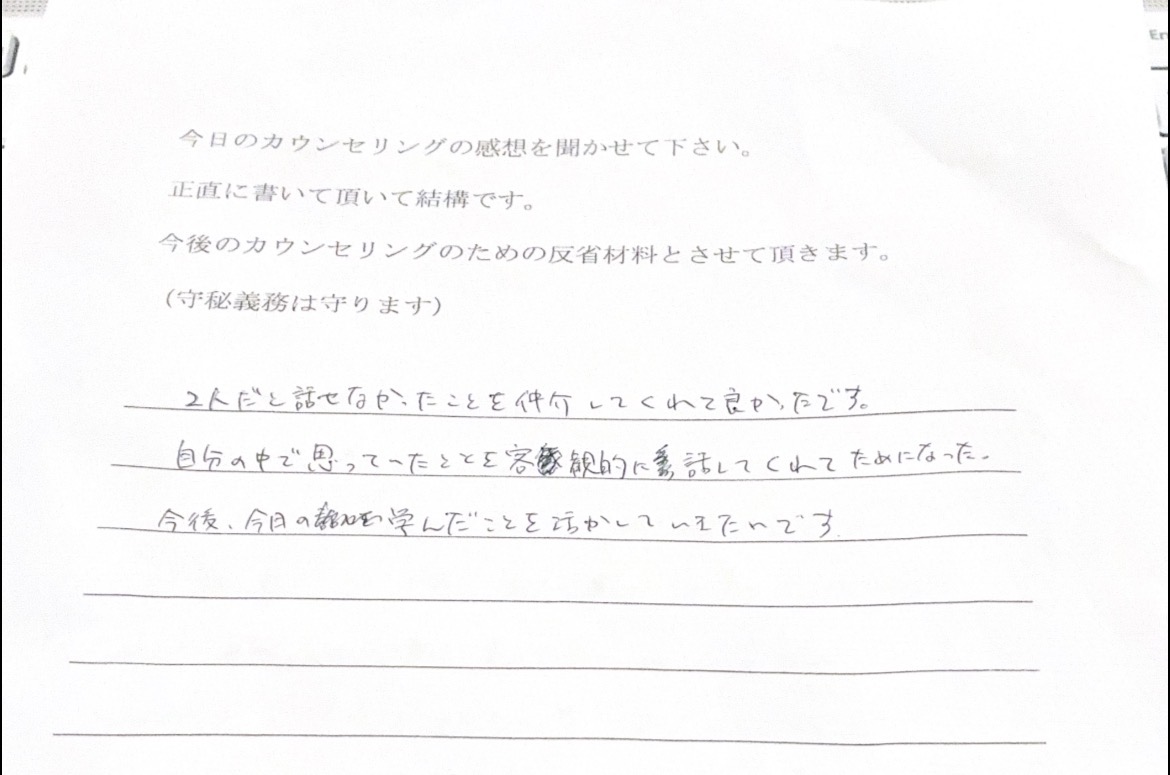 今日のカウンセリングの感想を聞かせて下さい。
正直に書いて頂いて結構です。
今後のカウンセリングのための反省材料とさせて頂きます。
(守秘義務は守ります)
2人だと話せなかったことを仲介してくれて良かったです。
自分の中で思っていったことを客観的に話してくれてためになった。
今後、今日の学んだことを活かしていきたいです